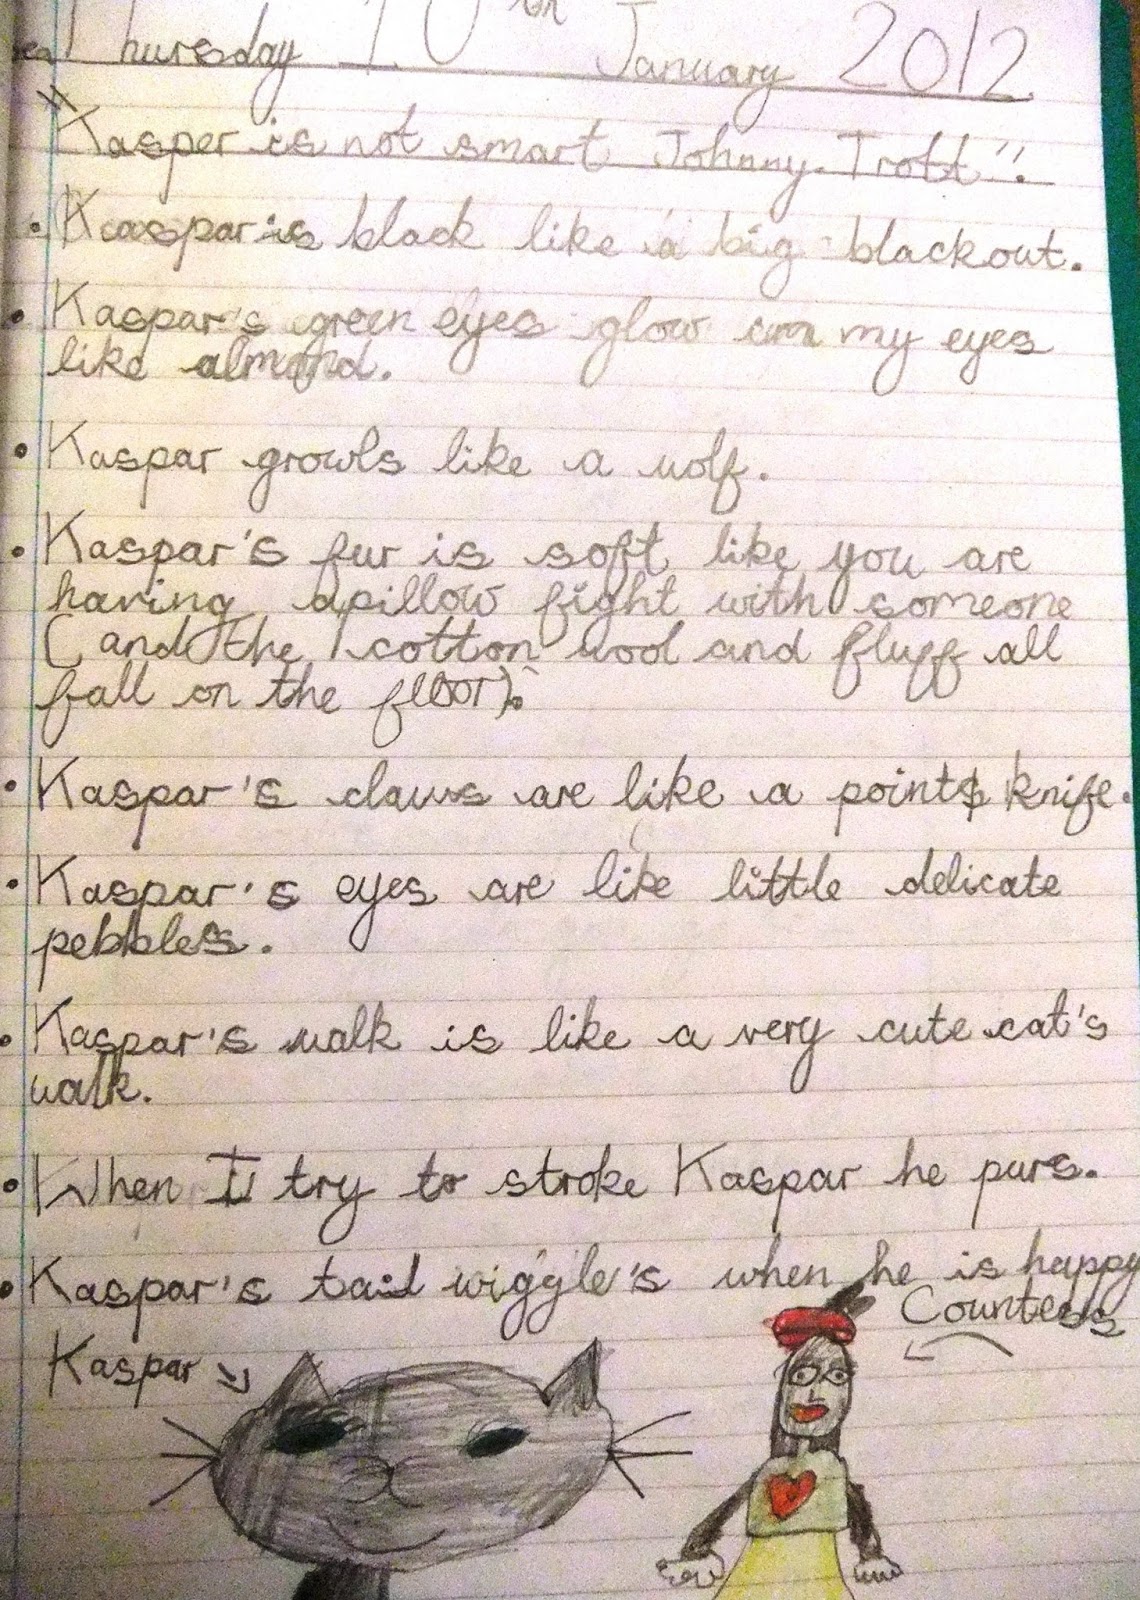 Thursday 10th January 2012
"Kasper is not smart Johnny Trott".
• Kaspar is black like a big blackout.
• Kaspar's green eyes glow in my eyes
like almond.
• Kaspar growls like a wolf.
• Kaspar's fur is soft like you are
having a pillow fight with someone
(and the cotton wool and fluff all
fall on the floor).
• Kaspar's claws are like a points knife.
• Kaspar's eyes are like little delicate
pebbles.
• Kaspar's walk is like a very cute cat's
walk.
• When I try to stroke Kaspar he purs.
• Kaspar's tail wiggle's when he is happy
Countess
Kaspar